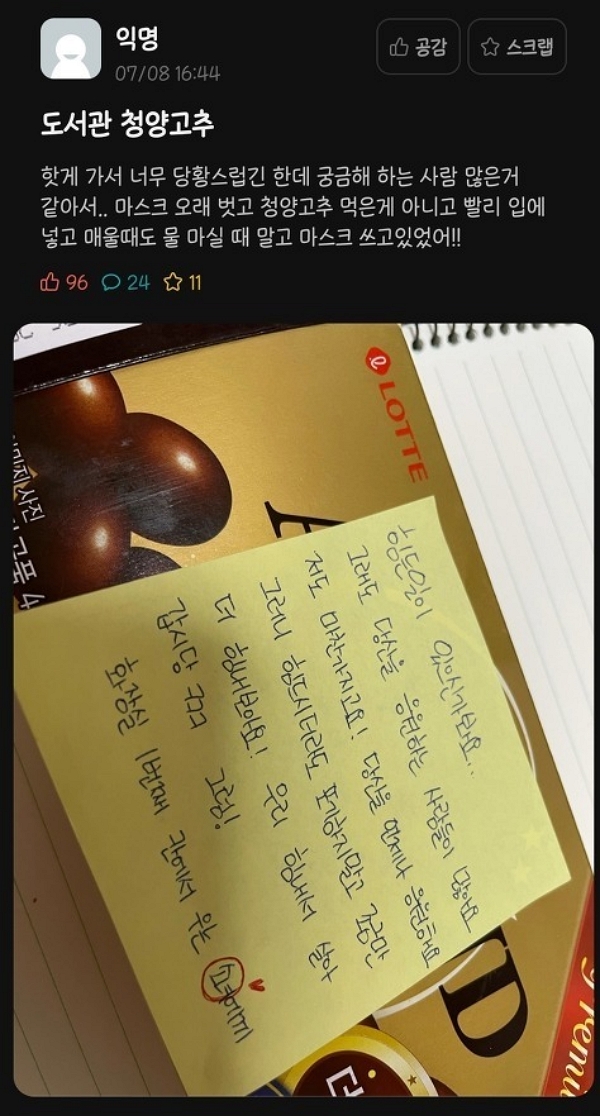 익명
07/08 16:44
공감
스크랩
도서관 청양고추
핫게 가서 너무 당황스럽긴 한데 궁금해 하는 사람 많은거
같아서.. 마스크 오래 벗고 청양고추 먹은게 아니고 빨리 입에
넣고 매울때도 물 마실 때 말고 마스크 쓰고있었어!!
96 24 11
LOTTE
힘든일이 있으신가봐요..
그래도 당신을 응원하는 사람들이 많아요
저도 마찬가지고요! 당신을 언제나 응원해요
그러니 힘드시더라도 포기하지말고 조금만
더 힘내봐요! 우리 힘내서 살아
갑시당 그럼!
화장실 1번째 칸에서 우는 소녀에게